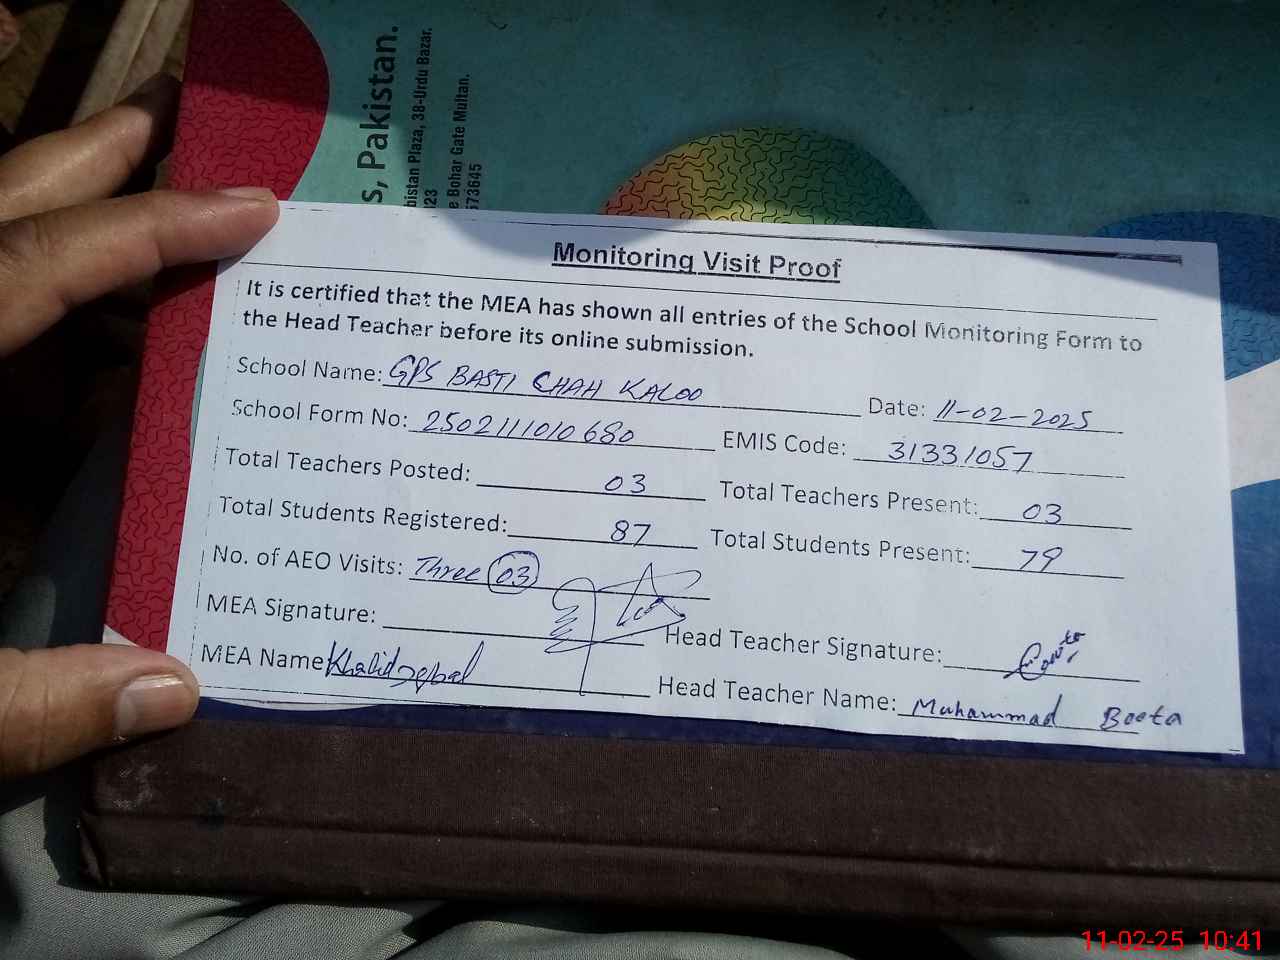 s, Pakistan.
bistan Plaza, 38-Urdu Bazar.
e Bohar Gate Multan.
573645
Monitoring Visit Proof
It is certified that the MEA has shown all entries of the School Monitoring Form to
the Head Teacher before its online submission.
School Name: GPS BASTI CHAH KALOO Date: 11-02-2025
School Form No: 2502111010680 EMIS Code: 31331057
Total Teachers Posted: 03 Total Teachers Present: 03
Total Students Registered: 87 Total Students Present: 79
No. of AEO Visits: Three 03
MEA Signature: Head Teacher Signature:
MEA Name Khalid Iqbal Head Teacher Name: Muhammad Boota
11-02-25 10:41